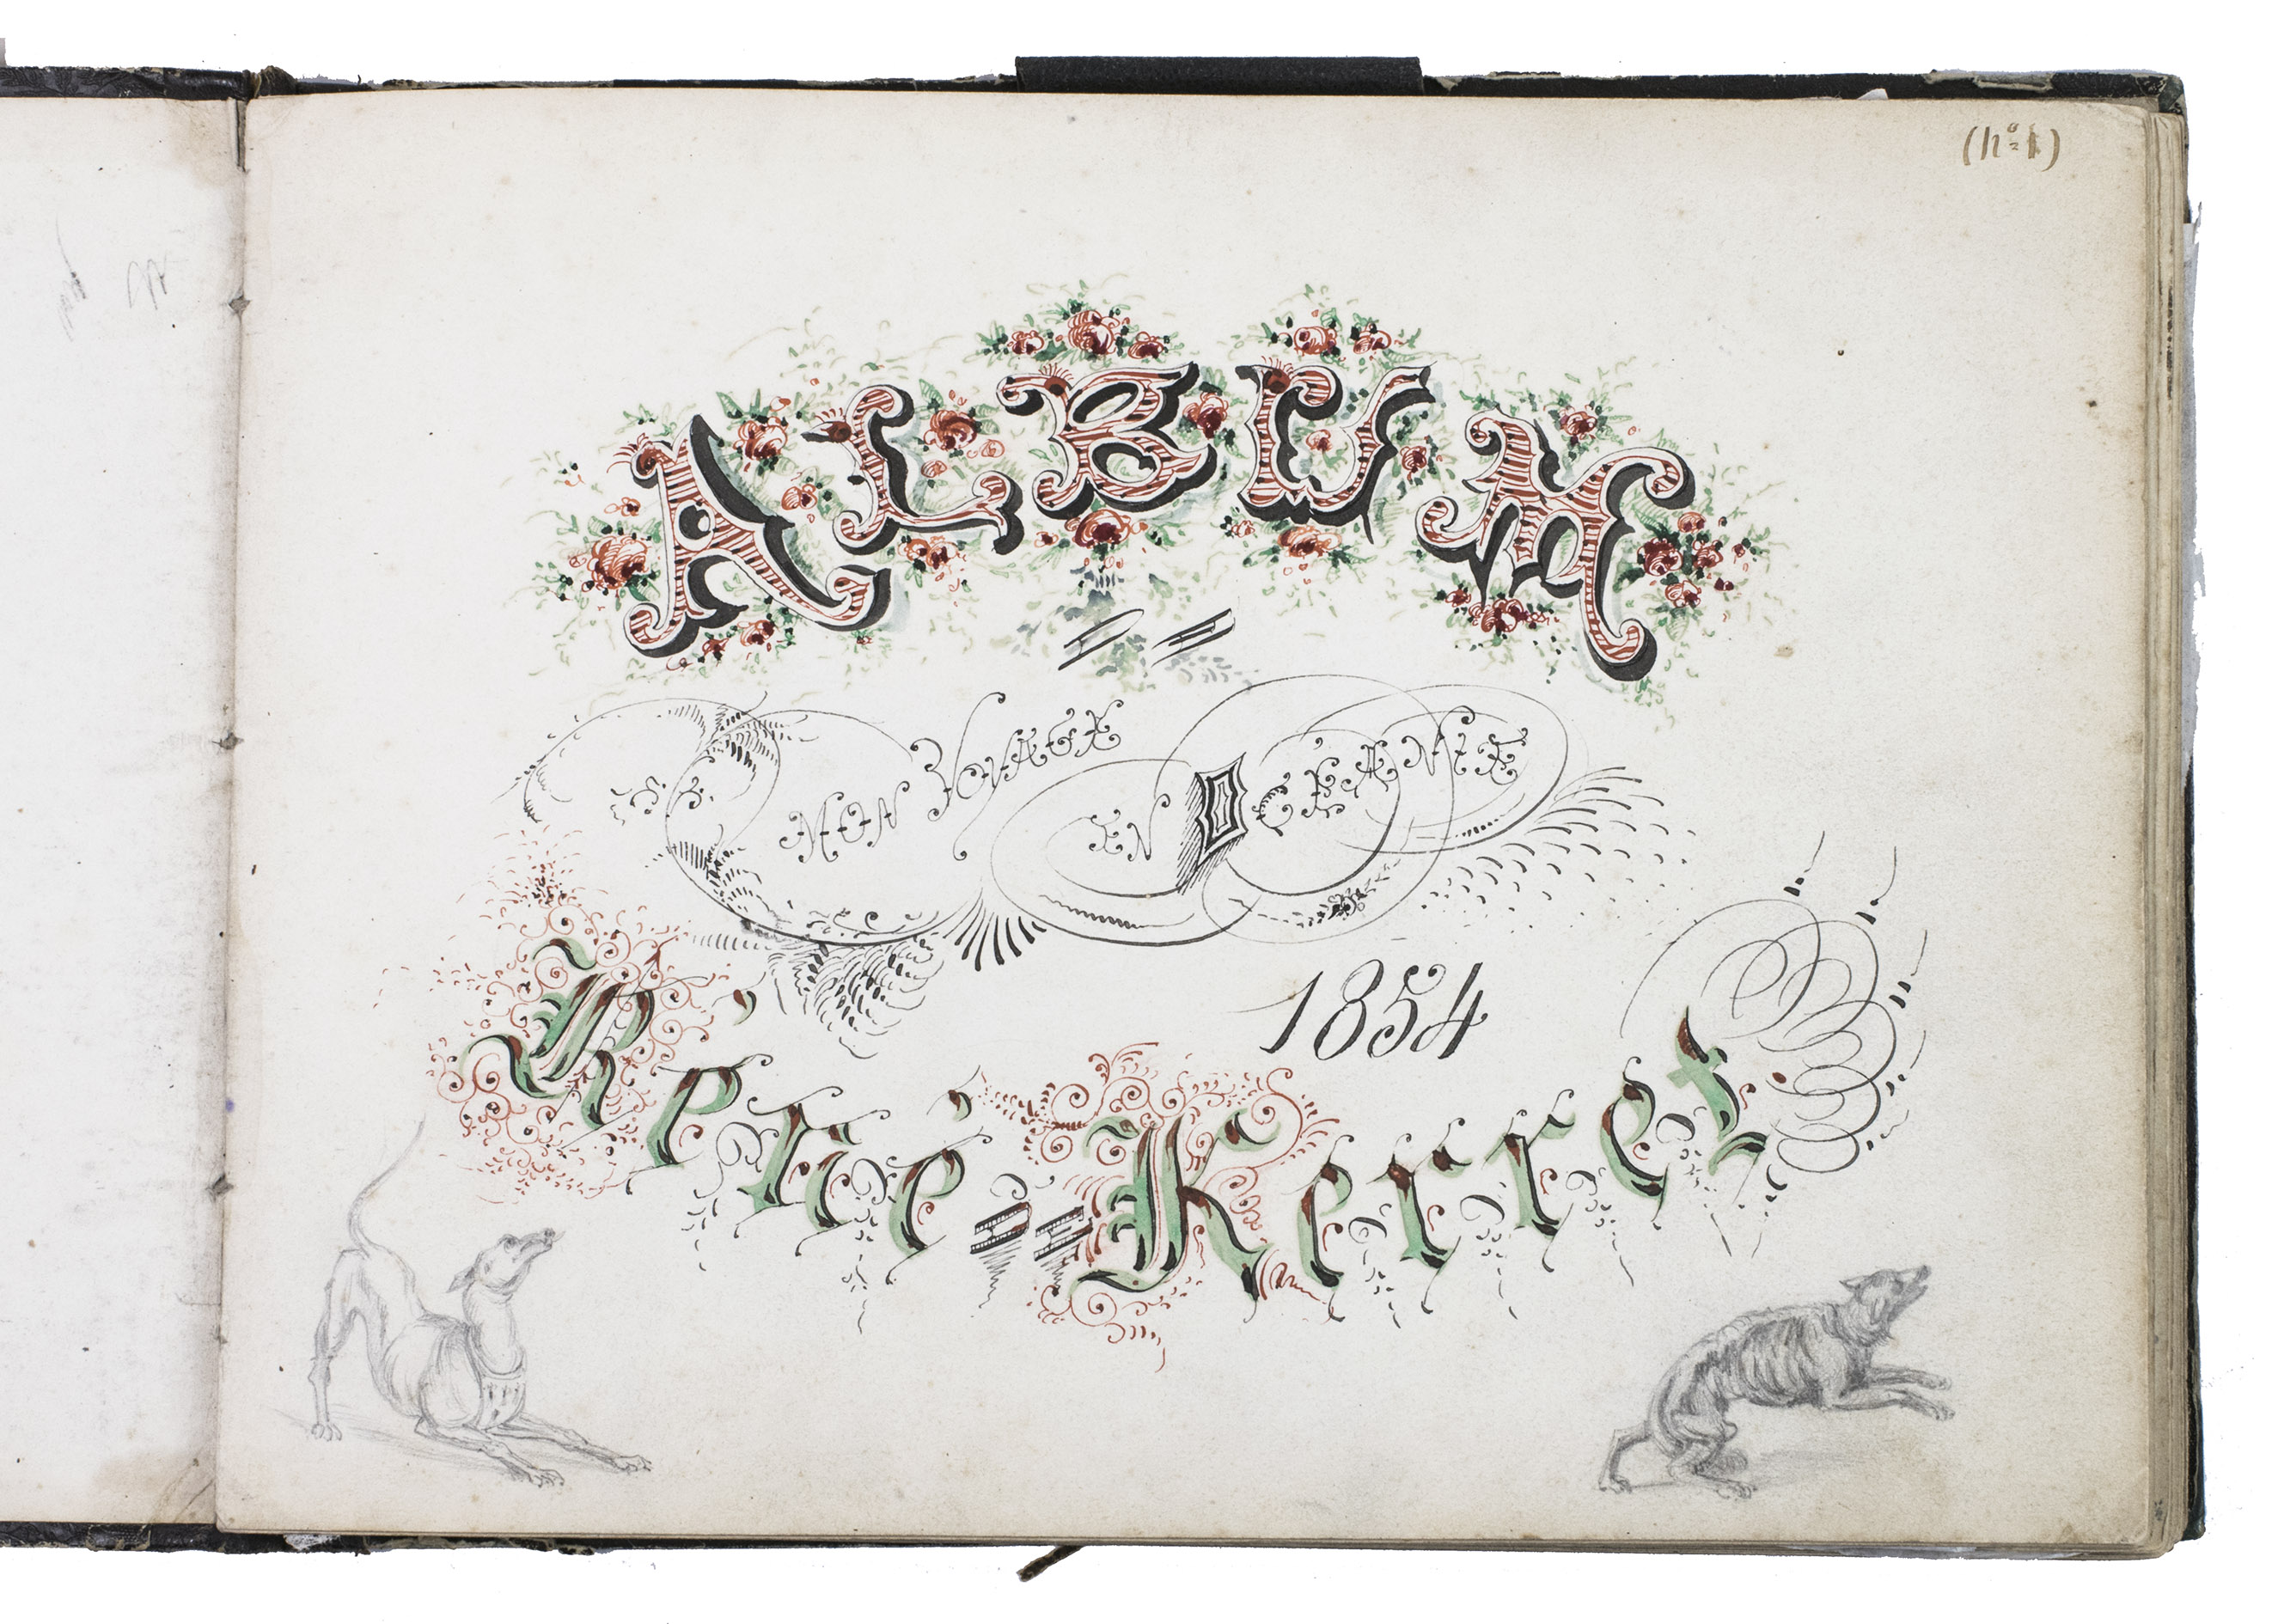 (nº 1)
ALBUM
MON VOYAGE EN OCEANIE
1854
Réné Kerret